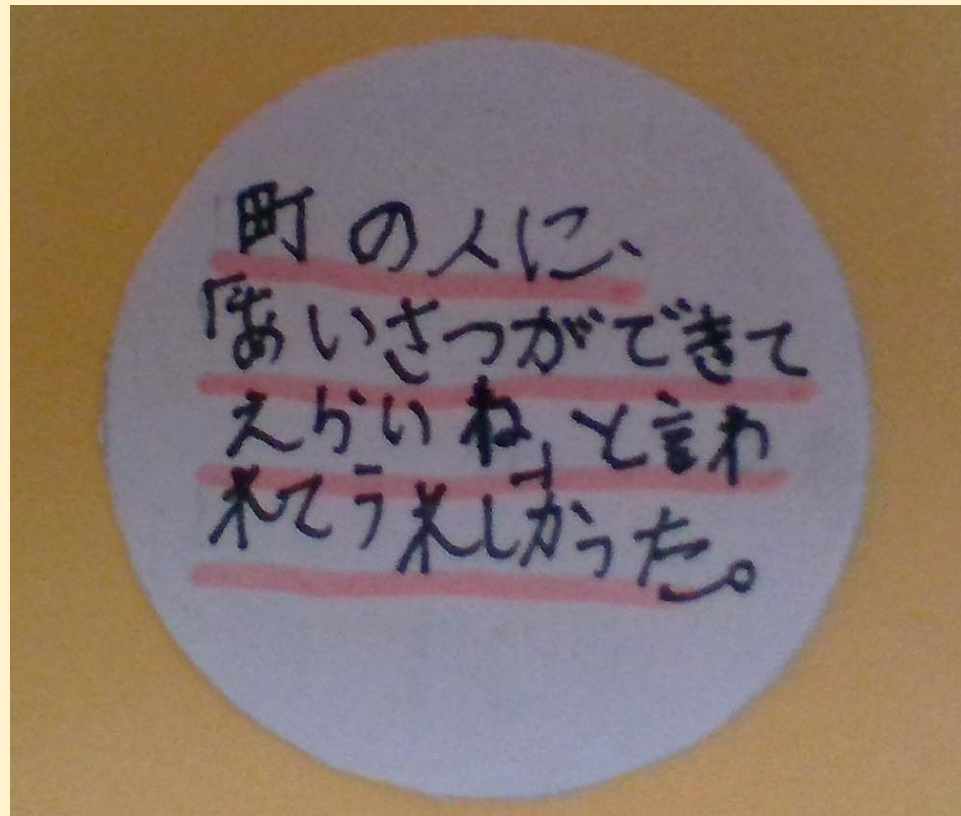 町の人に、
「あいさつができて
えらいね」と言わ
れてうれしかった。